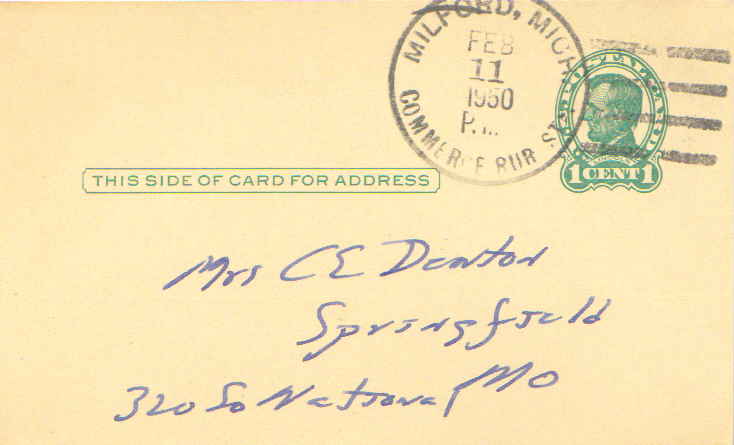 MILFORD, MICH.
FEB
11
1950
P.M.
COMMERCE RUR. STA.
U.S. POSTAL CARD
1 CENT 1
THIS SIDE OF CARD FOR ADDRESS
Mrs C E Denton
Springfield
Mo
320 So National